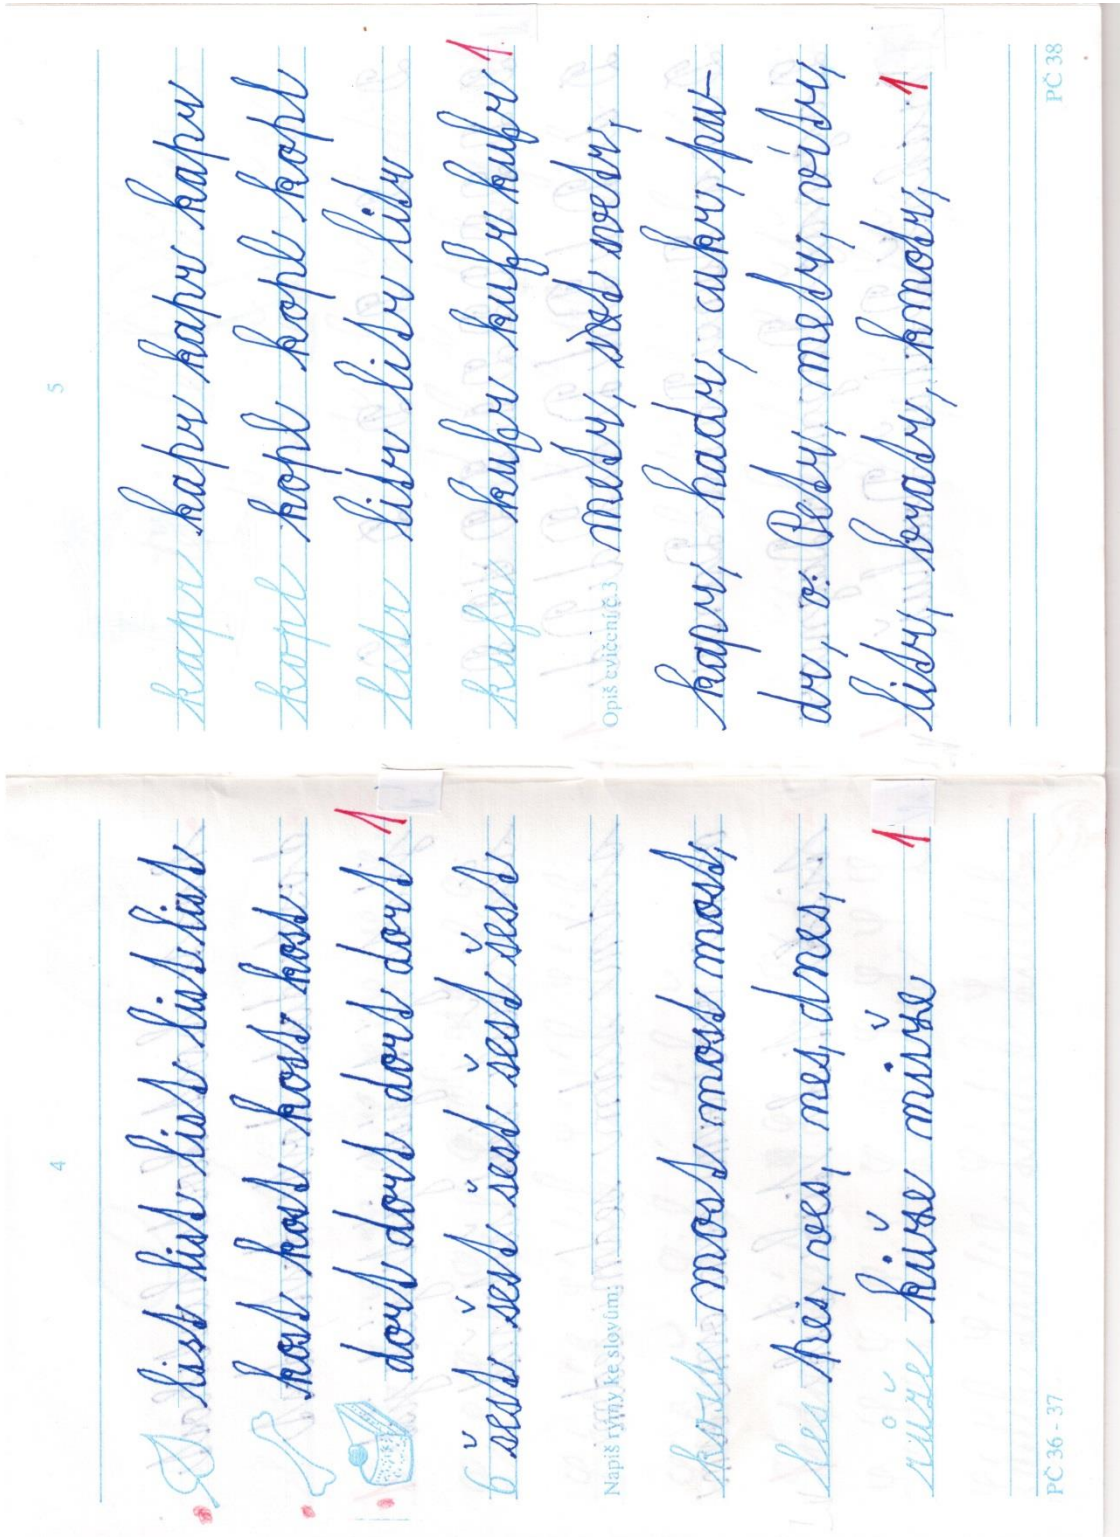 4
list list list list list
kost kost kost kost
dort dort dort dort
6 šest šest šest šest šest
Napiš rýmy ke slovům:
kost most most most,
les pes, ves, nes, dnes,
růže kůže míže
PČ 36 - 37
5
kapr kapr kapr kapr
kopl kopl kopl kopl
litr litr litr litr
kufr kufr kufr kufr
1
Opiš cvičení č.3
metr, svetr,
kapr, hadr, cukr, pu-
dr, v. Petr, metr, vítr,
litr, bratr, kmotr,
1
PČ 38